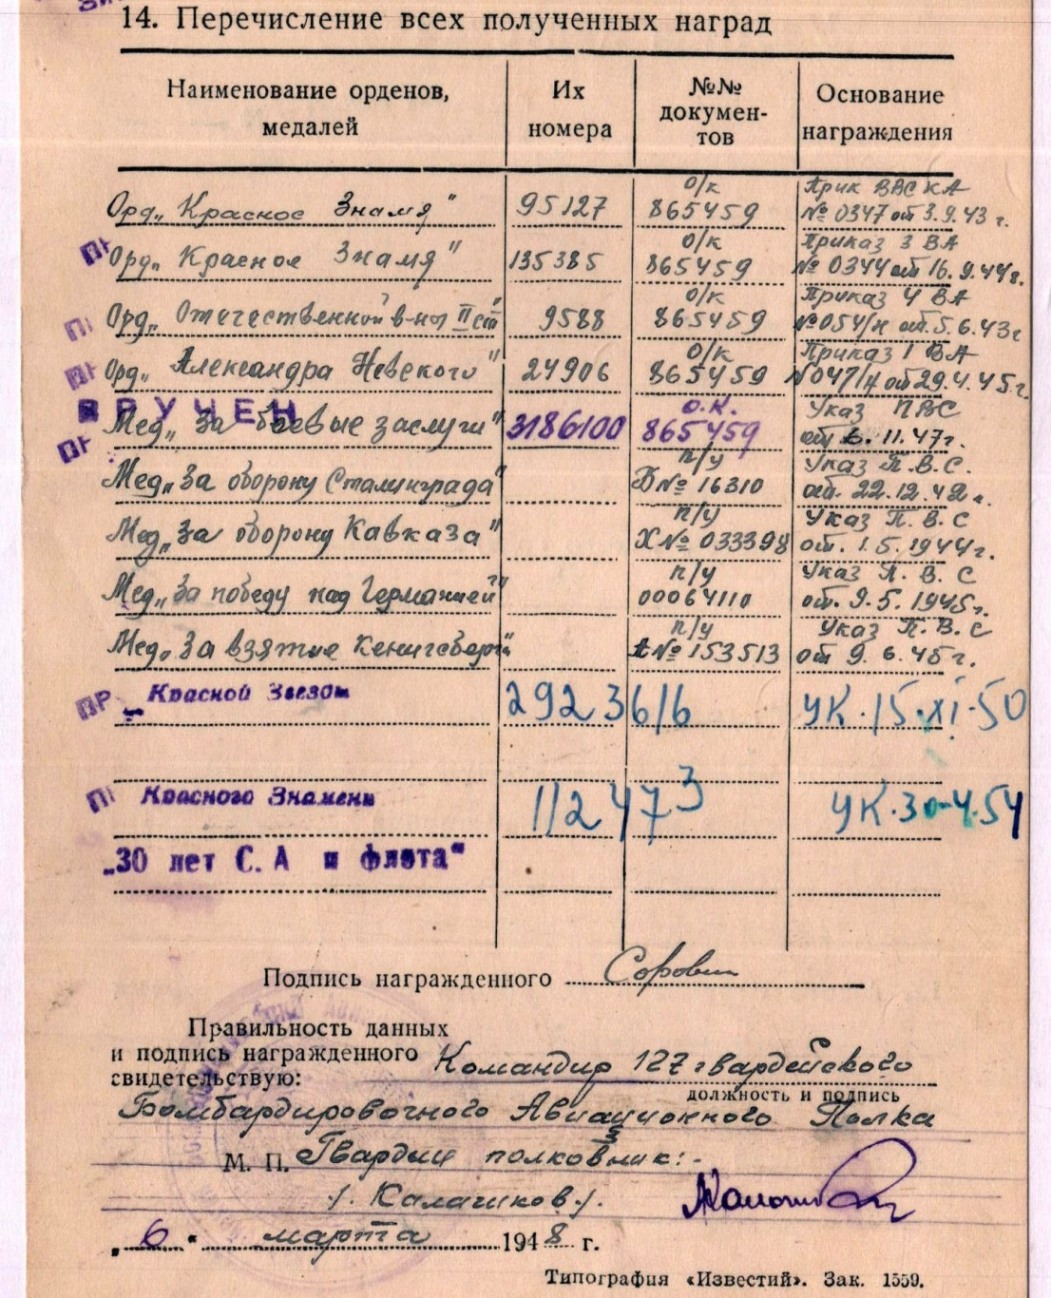 14. Перечисление всех полученных наград
Наименование орденов, медалей
Их номера
№№ докумен-тов
Основание награждения
Орд„ Красное Знамя" 95127 о/к 865459 Прик ВВС КА № 0347 от 3.9.43 г.
ПР Орд„ Красное Знамя" 135385 о/к 865459 Приказ 3 ВА № 0344 от 16.9.44г.
ПР Орд„ Отечественной в-ны II ст" 9588 о/к 865459 Приказ 4 ВА №054/н от.5.6.43г
ПР Орд„ Александра Невского" 24906 о/к 865459 Приказ 1 ВА №047/н от29.4.45г.
ВРУЧЕН
ПР Мед„ За боевые заслуги" 3186100 о.к. 865459 Указ ПВС от 6.11.47г.
Мед„ За оборону Сталинграда" п/у № 16310 Указ П.В.С. от. 22.12.42г.
Мед„ За оборону Кавказа" п/у Х№ 033398 Указ П.В.С от. 1.5.1944г.
Мед„ За победу над Германией" п/у Указ П.В.С от. 9.5.1945г.
Мед„ За взятие Кенигсберга" п/у №153513 Указ П.В.С от 9.6.45г.
ПР Красной Звезды 2923616 УК.15.XI.50
ПР Красного Знамени 112473 УК.30-4.54
„30 лет С.А и флота"
Подпись награжденного
Правильность данных
и подпись награжденного Командир 127 гвардейского
свидетельствую:
должность и подпись
Бомбардировочного Авиационного Полка
М. П. Гвардии полковник:-
/. Калачиков./.
„ 6 " марта 1948 г.
Типография «Известий». Зак. 1559.